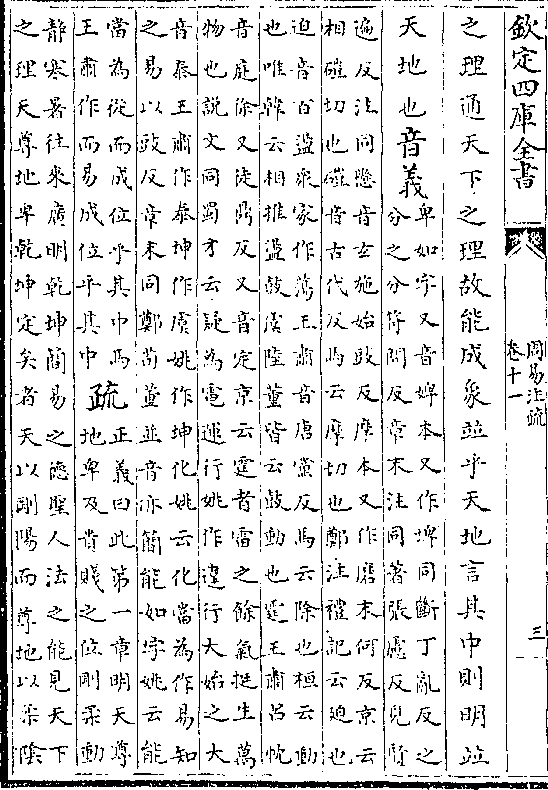 欽定四庫全書
周易注疏
卷十一
三
之理通天下之理故能成象並乎天地言其中則明並
天地也音義卑如字又音婢本又作埤同斷丁亂反之
分之分符問反章末注同著張慮反見賢
遍反注同懸音玄施始豉反摩本又作磨末何反京云
相磑切也磑音古代反馬云摩切也鄭注禮記云迫也
迫音百盪衆家作蕩王肅音唐黨反馬云除也桓云動
也唯韓云相推盪鼓虞陸董皆云鼓動也霆王肅呂忱
音庭徐又徒鼎反又音定京云霆者雷之餘氣挺生萬
物也說文同蜀才云疑為電運行姚作違行大始之大
音泰王肅作泰坤作虞姚作坤化姚云化當為作易知
之易以豉反章末同鄭荀董並音亦簡能如字姚云能
當為從而成位乎其中馬
王肅作而易成位乎其中
疏正義曰此第一章明天尊
地卑及貴賤之位剛柔動
靜寒暑往來廣明乾坤簡易之德聖人法之能見天下
之理天尊地卑乾坤定矣者天以剛陽而尊地以柔陰